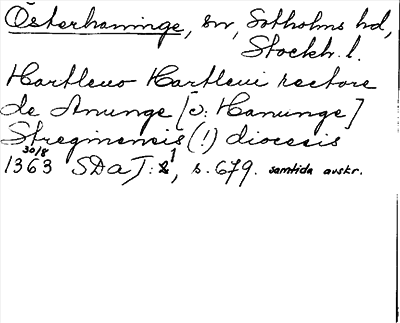 Österhaninge, sn, Sotholms hd,
Stockh. l.
Hartlevo Hartleui rectore
de Anunge [ɔ: Hanunge]
Streginensis (!) diocesis
30/8
1363 SDaJ: 1, s. 679. samtida avskr.